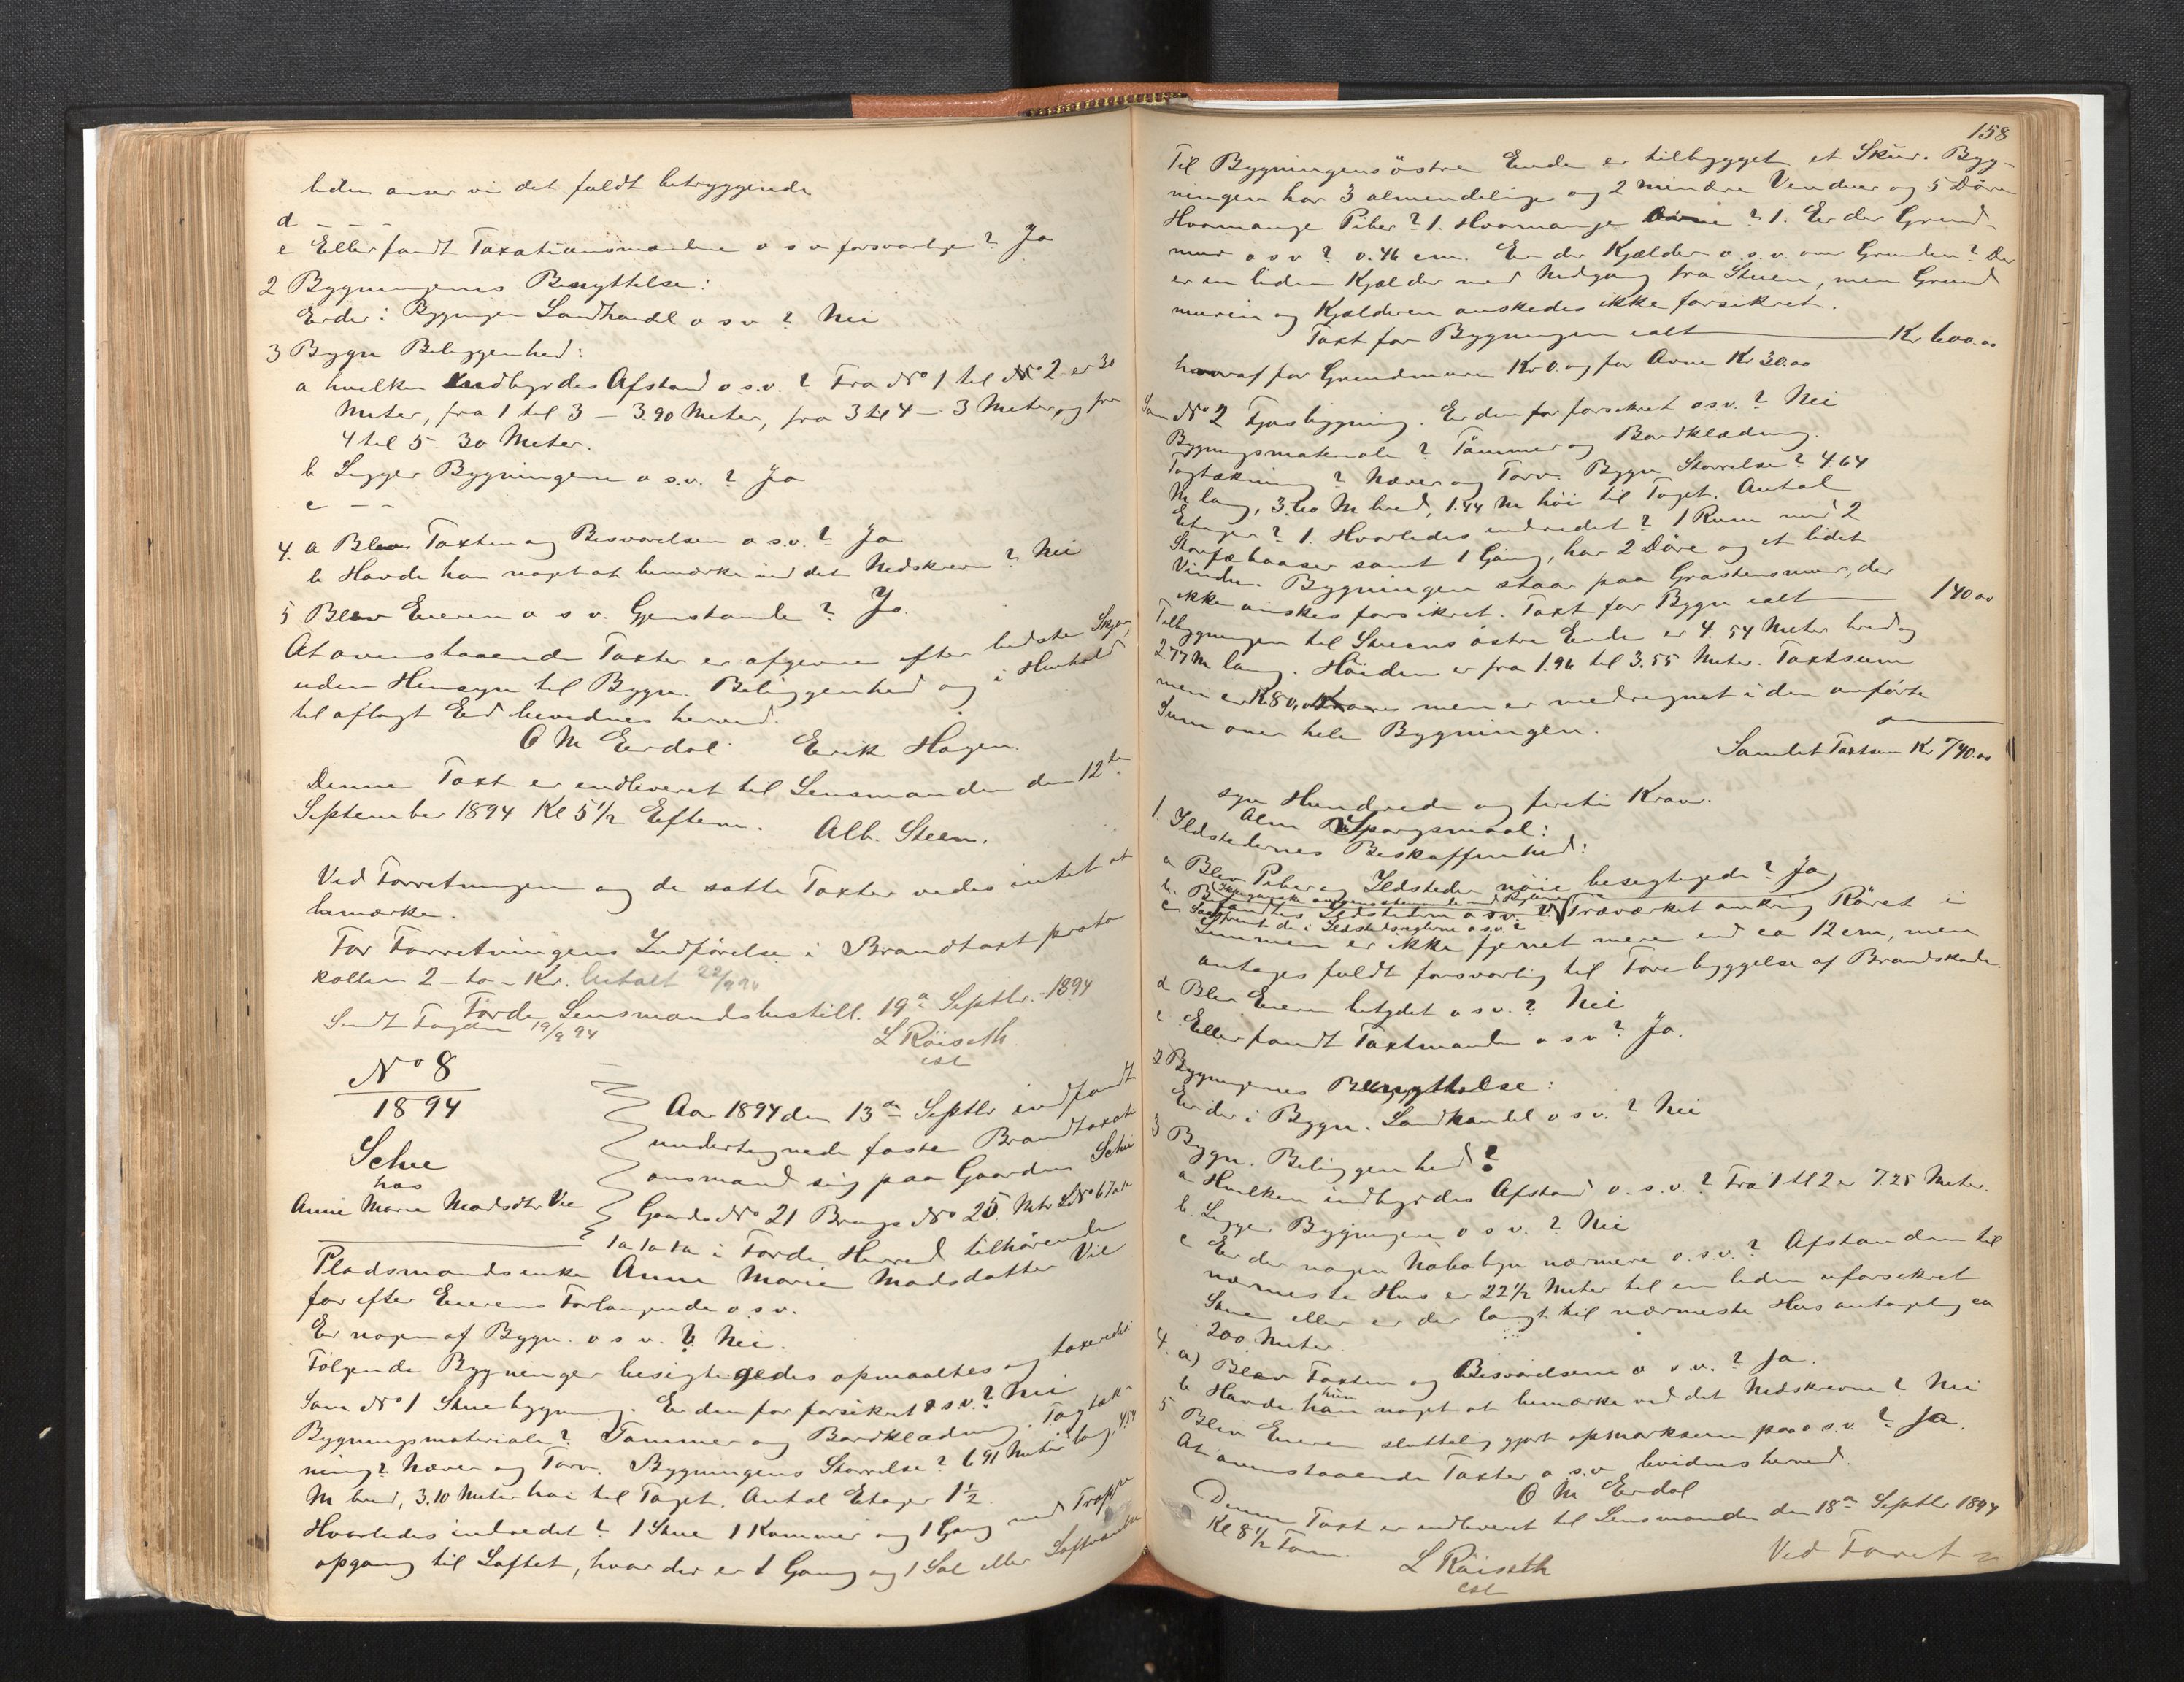 liden anser vi det fuldt betryggende
d — — —
e Eller fandt Taxationsmændene o s v forsvarlige? Ja
2 Bygningernes Benyttelse:
Er der i Bygningen Landhandel o s v ? Nei
3 Bygn Beliggenhed:
a hvilken indbyrdes Afstand o.s.v.? Fra No 1 til No 2 er 30
Meter, fra 1 til 3 – 390 Meter, fra 3 til 4 – 3 Meter og fra
4 til 5 - 30 Meter.
b Ligger Bygningerne o s.v. ? Ja
c — —
4. a Blev Taxten og Besvarelsen o s.v.? Ja
b Havde han noget at bemærke ved det Nedskrevne ? Nei
5 Blev Eieren o s v. Gjenstande ? Ja.
At ovenstaaende Taxter er afgivne efter bedste Skjøn,
uden Hensyn til Bygn. Beliggenhed og i Henhold
til aflagt Eed bevidnes herved.
O M Erdal Erik Hagen.
Denne Taxt er indleveret til Lensmanden den 12te
September 1894 Kl 5 1/2 Efterm.
Alb. Steen.
Ved Forretningen og de satte Taxter vides intet at
bemærke.
For Forretningens Indførelse i Brandtaxtproto
kollen 2 – to – Kr. betalt 22/9 94
Førde Lensmandsbestill. 19de Septbr. 1894
Sendt Fogden 19/9 94
L Röiseth
cst
No 8
1894
Schee
hos
Anne Marie Madsdtr Vie
Aar 1894 den 13de Septbr indfandt
undertegnede faste Brandtaxati
onsmand sig paa Gaarden Schei
Gaards No 21 Brugs No 25. Mtr LNo 67a a
1a 1a 1a i Førde Herred tilhørende
Pladsmandsenke Anne Marie Madsdatter Vie
for efter Eierens Forlangende o s v.
Er nogen af Bygn. o s v. ? Nei.
Følgende Bygninger besigtigedes opmaaltes og taxeredes
Som No 1 Stuebygning. Er den før forsikret o s.v.? Nei
Bygningsmateriale? Tømmer og Bordklædning. Tagtæk-
ning? Næver og Torv. Bygningens Størrelse? 6.91 Meter lang, 4.54
M bred, 3.10 Meter høi til Taget. Antal Etager 1 1/2
Hvorledes indredet ? 1 Stue 1 Kammer og 1 Gang med Trappe
opgang til Loftet, hvor der er 1 Gang og 1 Sal eller Loftværelse
158
Til Bygningens östre Ende er tilbygget et Skur. Byg-
ningen har 3 almindelige og 2 mindre Vinduer og 5 Döre
Hvormange Piber ? 1. Hvormange Ovne ? 1. Er der Grund-
mur o s v ? 0.46 cm. Er der Kjælder o.s.v. om Grunden? Der
er en liden Kjælder med Nedgang fra Stuen, men Grund
muren og Kjælderen ønskedes ikke forsikret.
Taxt for Bygningen ialt — Kr 600.00
hvoraf for Grundmuren Kr 0. og for Ovne Kr 30.00
Som No 2 Fjøsbygning. Er den før forsikret o s.v. ? Nei
Bygningsmateriale ? Tömmer og Bordklædning.
Tagtækning ? Næver og Torv. Bygn Størrelse? 4.64
M lang, 3.60 M bred, 1.44 M höi til Taget. Antal
Etager ? 1. Hvorledes indredet ? 1 Rum med 2
Storfæbaaser samt 1 Gang, har 2 Döre og et lidet
Vindu. Bygningen staar paa Graastensmur, der
ikke ønskes forsikret. Taxt for Bygn ialt — 140.00
Tilbygningen til Stuens östre Ende er 4.54 Meter bred og
2.77 M lang. Höiden er fra 1.96 til 3.55 Meter. Taxtsum
men er K 80,00 men er medregnet i den anförte
Sum over hele Bygningen.
Samlet Taxtsum Kr 740.00
syv Hundrede og firti Kroner.
Alm Spørgsmaal:
1. Ildstedernes Beskaffenhed:
a Blev Piber og Ildsteder nöie besigtigede ? Ja
b.
c Fandtes Ildstederne o s v. ? Træværket omkring Röret i
Svimmen er ikke fjernet mere end ca 12 cm, men
antages fuldt forsvarlig til Forebyggelse af Brandskade.
d Blev Eieren betydet o s v. ? Nei
e Eller fandt Taxtmanden o s v ? Ja.
2 Bygningernes Benyttelse:
Er der i Bygn. Landhandel o s v. ? Nei
3 Bygn. Beliggenhed?
a Hvilken indbyrdes Afstand o. s.v. ? Fra 1 til 2 er 7.25 Meter.
b. Ligger Bygningerne o s v. ? Nei
c Er der nogen Nabobygn nærmere o.s.v.? Afstanden til
nærmeste Hus er 22 1/2 Meter til en liden uforsikret
Stue eller er der langt til nærmeste Hus antagelig ca
200 Meter.
4. a) Blev Taxten og Besvarelserne o s v. ? Ja.
b Havde hun noget at bemærke ved det Nedskrevne ? Nei
5 Blev Eieren sluttelig gjort opmærksom paa o s.v. ? Ja.
At ovenstaaende Taxter o s.v bevidnes herved.
O M Erdal
Denne Taxt er indleveret til Lensmanden den 18de Septbr 1894
Kl 8 1/2 Form.
L Röiseth
cst
Ved Forret